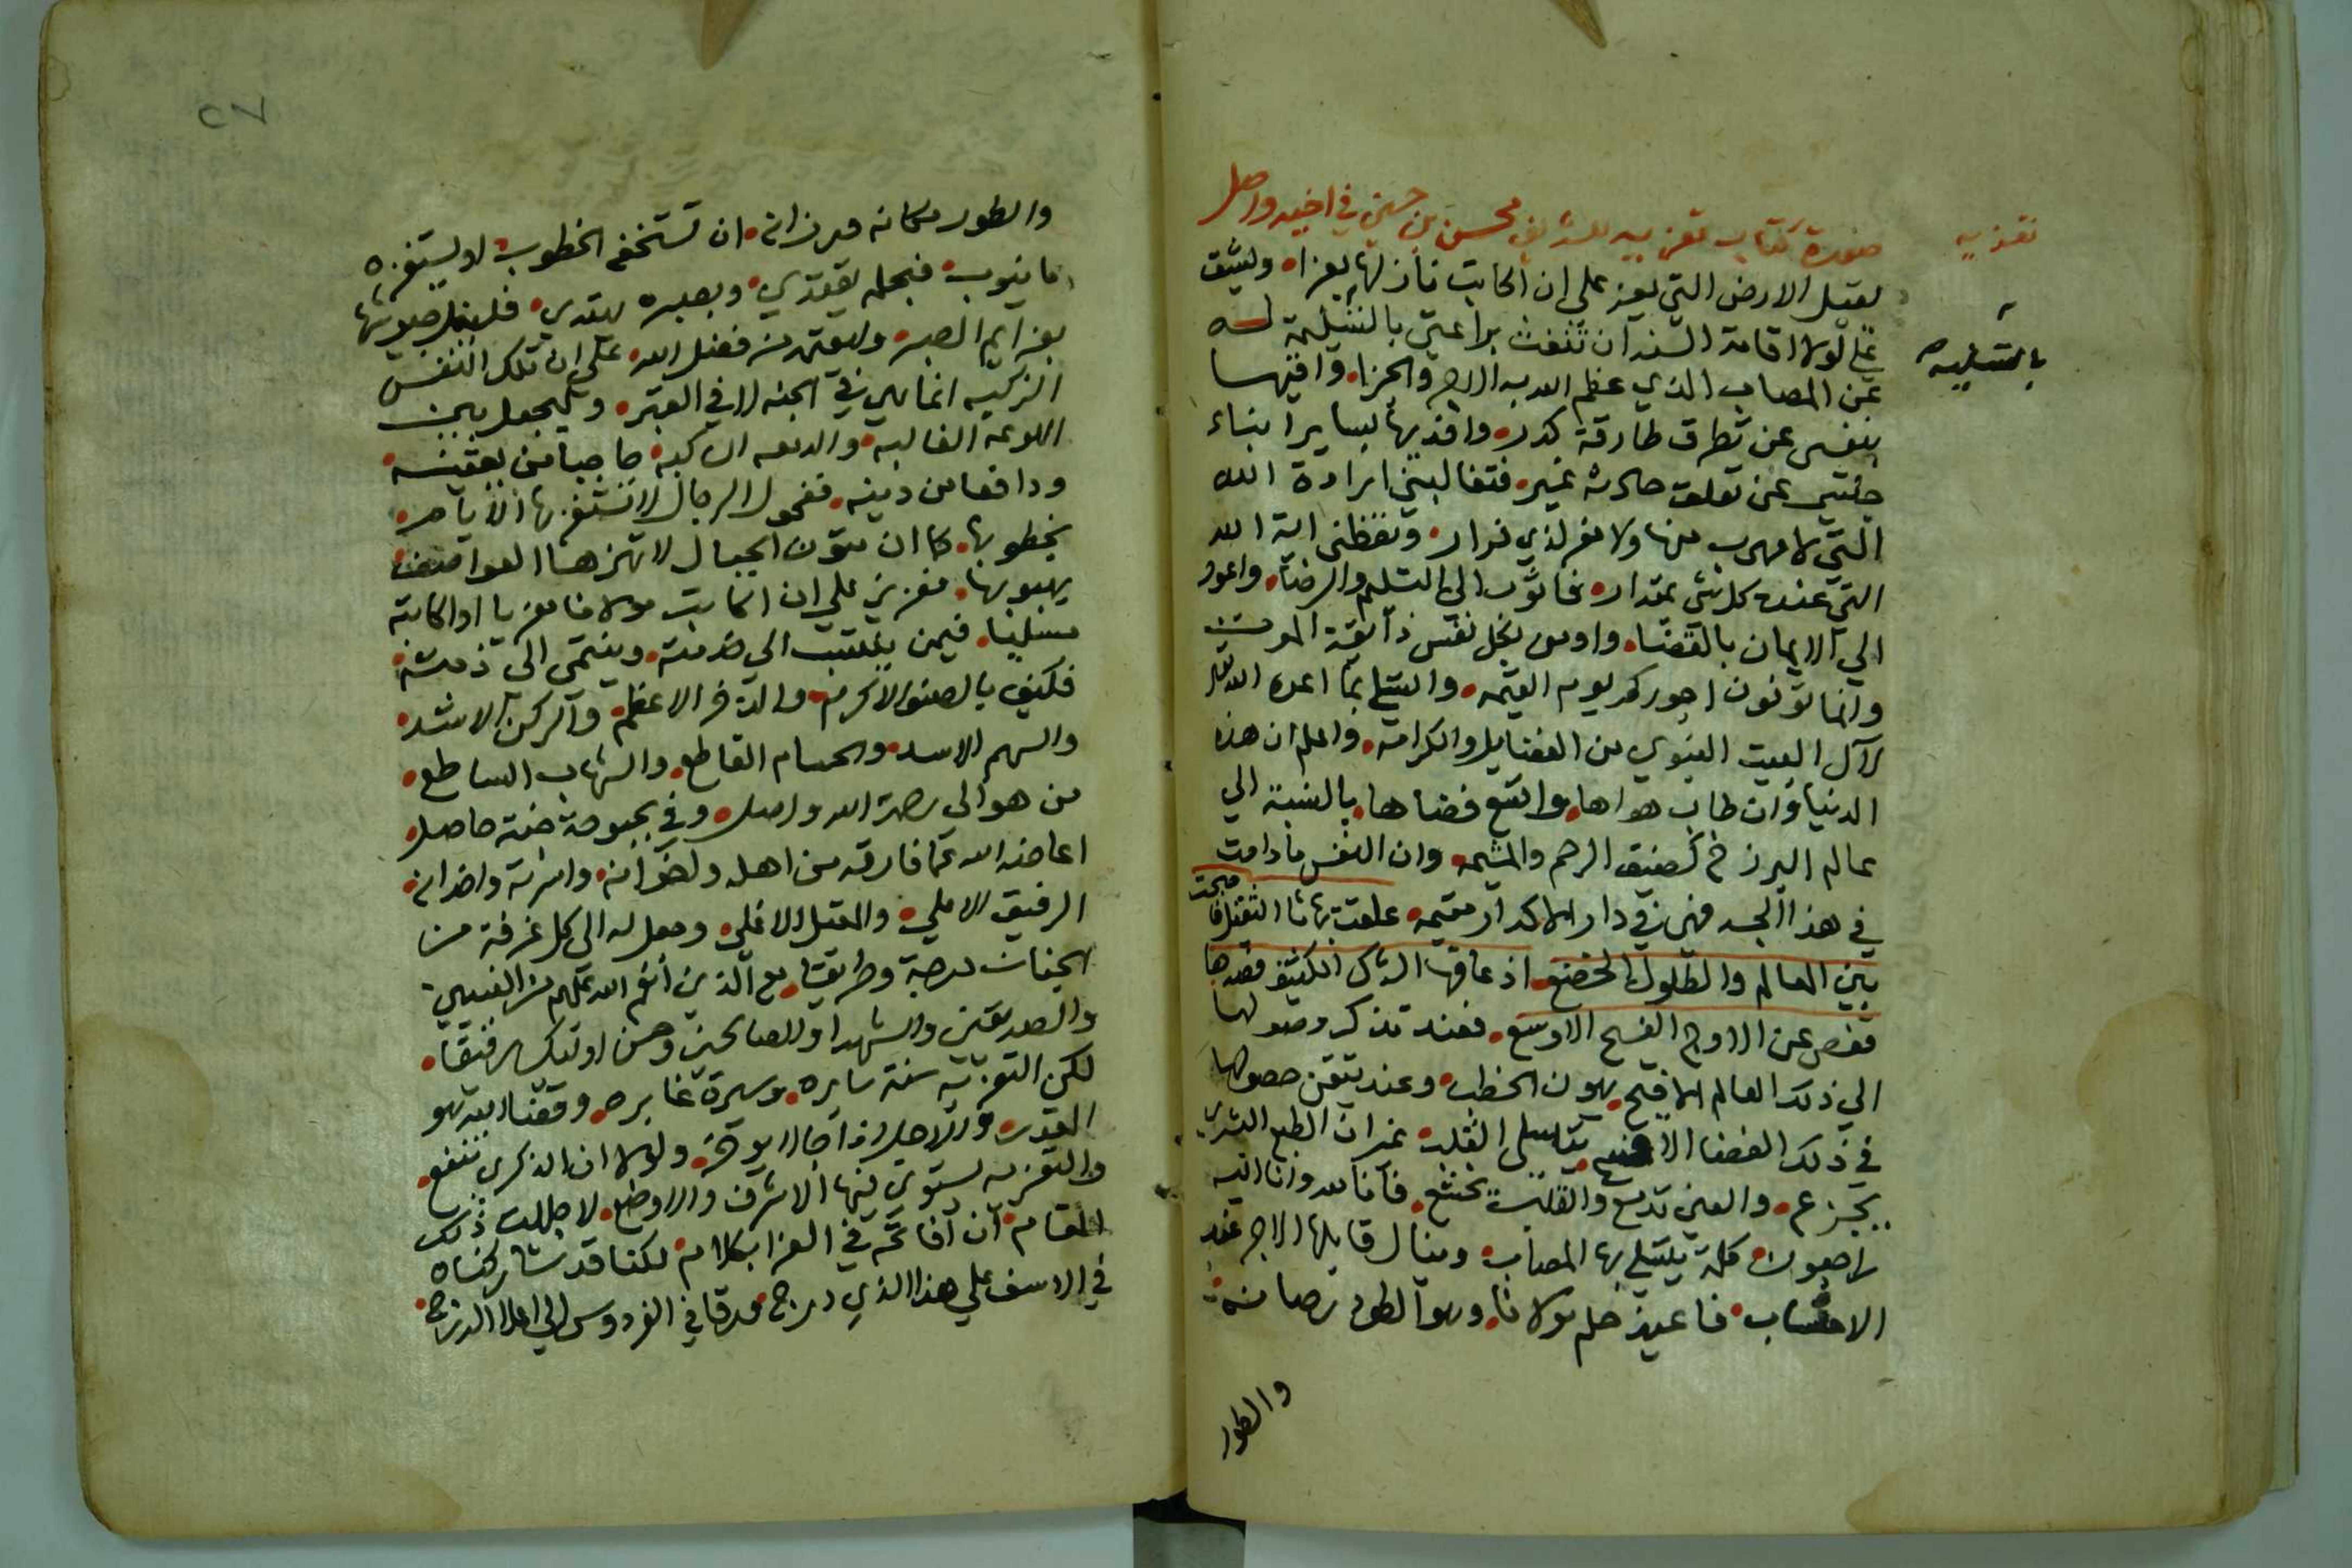 تعزيه
صورة كتاب تعزيه للشريف محسن بن حسين في اخيه واصل
يقبل الارض التي يعز علي ان اكاتب نازلها بعزاء ويشق
علي لولا اقامة السنه ان تنفث براعتي بالتسلية له
بالتسليه
عن المصاب الذي عظم الله به الاجر والجزا وافيها
بنفسي عن تطرق طارقة كدر وافديها بساير ابناء
جنسي عن تعلق حادثة غير فتغالبني ارادة الله
التي لا مهرب منها ولا مفر لذي فرار وتعظني اية الله
التي عنده كل شي بمقدار فاثوب الى التسليم والرضا واعود
الي الايمان بالقضا واومن بكل نفس ذائقة الموت
وانما توفون اجوركم يوم القيمه واتسلي بما اعده الله تعالى
لآل البيت النبوي من الفضايل والكرامه واعلم ان هذه
الدنيا وان طاب هواها واتسع فضاها بالنسبة الي
عالم البرزخ كضيق الرحم والمشيمه وان النفس مادامت
في هذا الجسد فهي في دار الاكدار مقيمه علقت بها ثا الثقيل فاصبحت
بين المعالم والطلول الخضع اذ عاقها الشرك الكثيف فصدها
قفص عن الاوج الفسيح الاوسع فعند تذكر وصولها
الي ذلك العالم الافيح يهون الخطب وعند تيقن حصولها
في ذلك الفضا يتسلى القلب غير ان الطبع البشري
يجزع والعين تدمع والقلب يخشع فانا لله وانا اليه
راجعون كلمة يتسلي بها المصاب وينال قايلها الاجر عند
الاحتساب فاعيذ حلم مولانا وهو الطود رصانه
والطور
٢٧
والطور مكانه ورزانه ان تستخفه الخطوب او يستفزه
ما ينوب فبحلمه يقتدي وبصبره يهتدي
بعزايم الصبر من فضل الله على ان تلك النفس
الزكيه انما هي في الجنه لا في القبر وليجعل بين
اللوعة الغالبه والدمعه الساكبه حاجبا من يقينه
ودافعا من دينه ففحول الرجال لا تستفزها الايام
بخطوبها كما ان متون الجبال لا تهزها العواصف
بهبوبها فعزيز علي ان اكاتب مولانا معزيا او اكاتبه
مسليا فيمن ينتسب الى خدمته وينتمي الى ذمته
فكيف بالصنو الاكرم والذخر الاعظم والركن الاشد
والسهم الاسد والحسام القاطع والشهاب الساطع
من هو الى رحمة الله واصل وفي بحبوحة جنته حاصل
اعاضه الله عما فارقه من اهله واخوانه واسرته واخدانه
الرفيق الاعلي والمقيل الاغلي وجعل له الى كل غرفة من
الجنان درجة وطريقا مع الذين انعم الله عليهم من النبيين
والصديقين والشهدا والصالحين وحسن اولئك رفيقا
لكن التعزيه سنة سايره وسيرة غابره وقضا الله هو
القدر والاجل اذا جا لا يؤخر ولولا ان الذكرى تنفع
والتعزيه يستوي فيها الاشرف والاوضع لاجللت ذلك
المقام ان افاتحه في العزا بكلام لكنا قد شاركناه
في الاسف علي هذا الذي درج ورقا في الفردوس الي اعلا الدرج